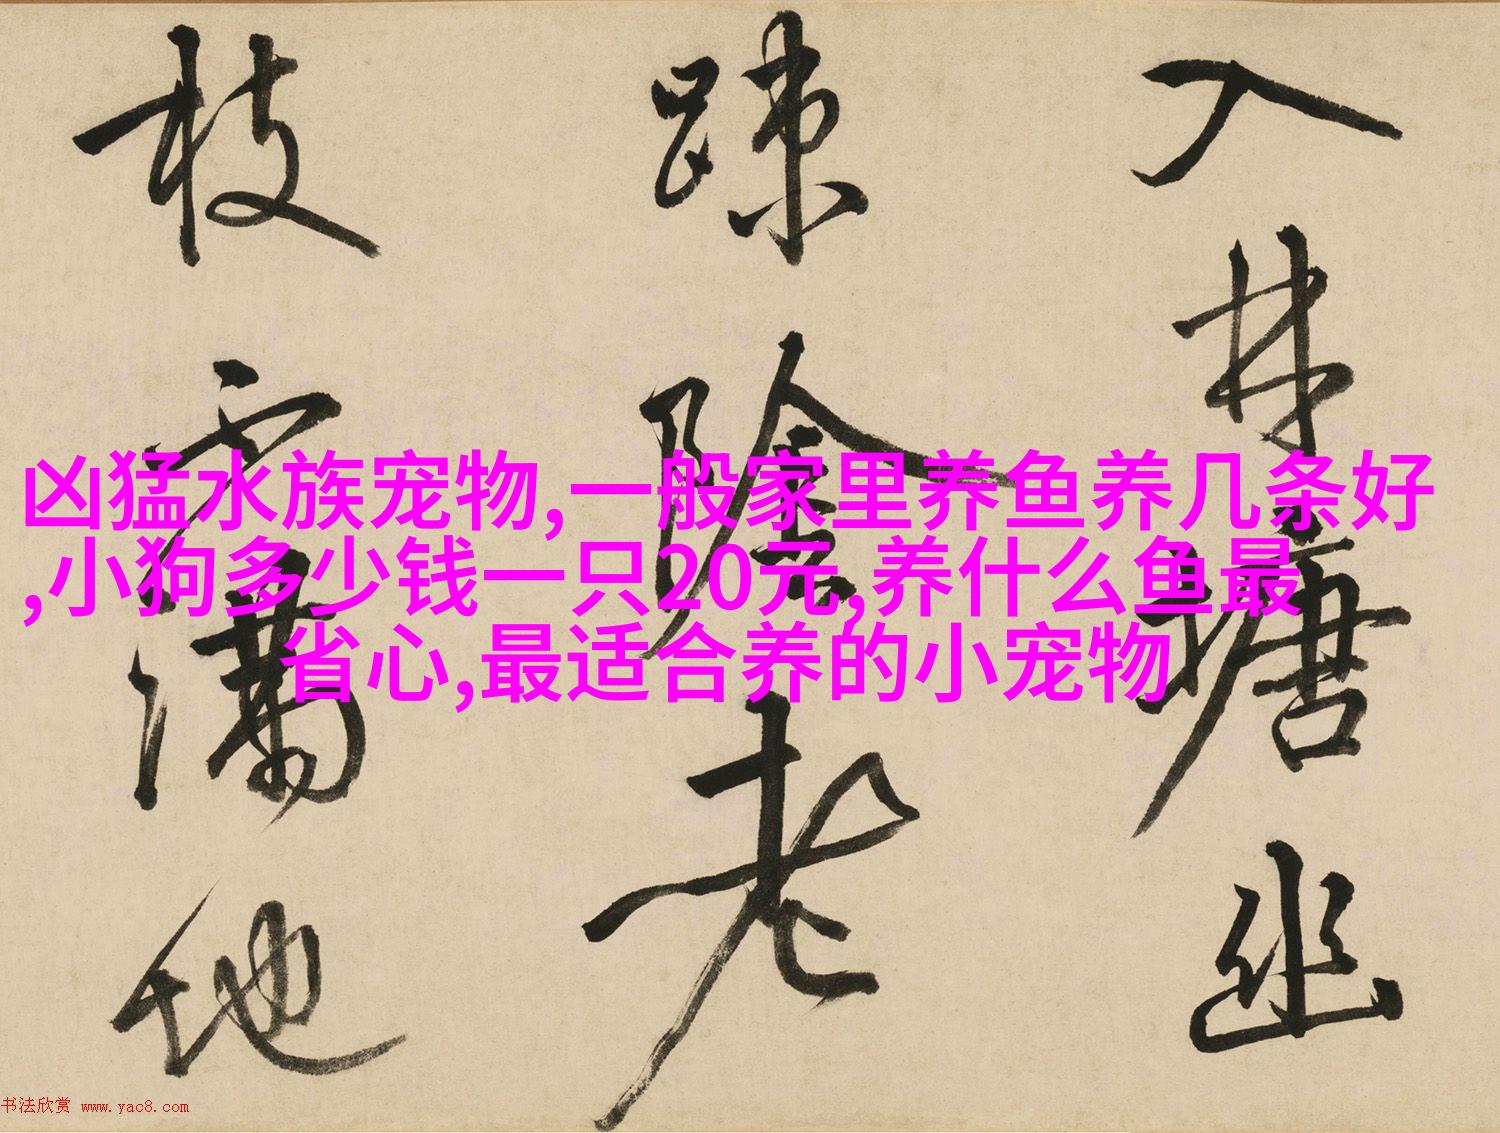 凶猛水族宠物,一般家里养鱼养几条好
,小狗多少钱一只20元,养什么鱼最
省心,最适合养的小宠物
入林塘幽
疎陰老
枝
滿地
书法欣赏 www.yac8.com